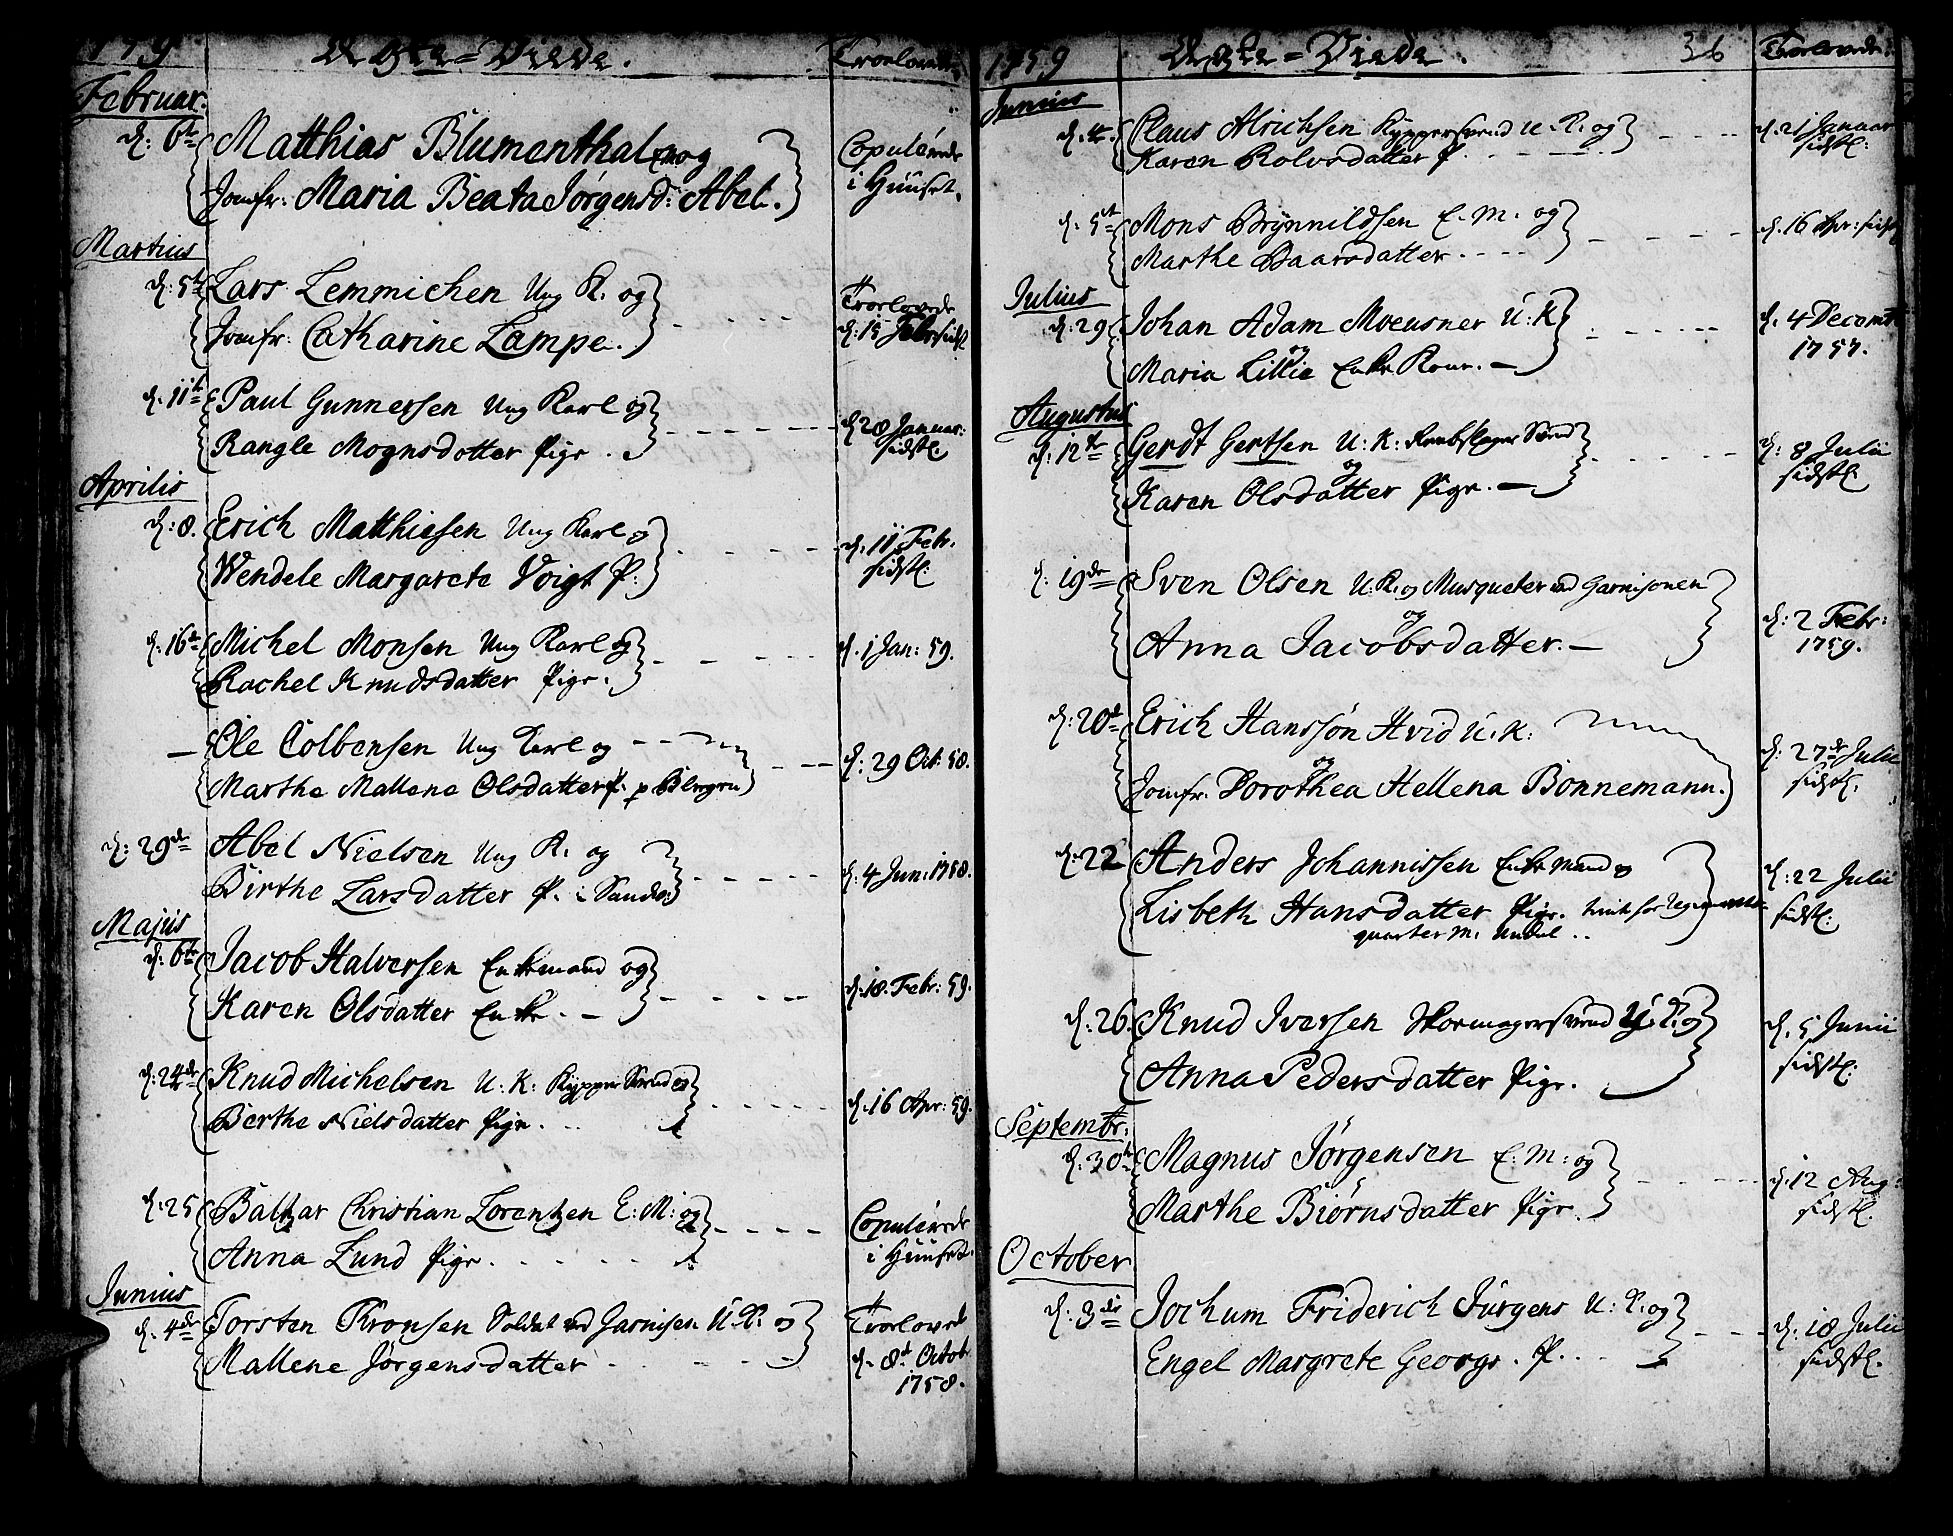 1759 Ægte=Viede. Troelovede
Februar.
d: 6te Matthias Blumenthal og
Jomfr: Maria Beata Jørgensd: Abel. Copulerede i Huuset.
Martius
d: 5te Lars Lemmichen Ung K. og
Jomfr: Catharine Lampe. Troelovede d: 15 Febr: sidstl
d: 11te Paul Gunnersen Ung Karl og
Rangle Mognsdotter Pige. d 28 Januar: sidstl:
Aprilis
d: 8. Erich Matthiesen Ung Karl og
Wendele Margarete Voigt P: d. 11 Febr. sidstl:
d: 16de Michel Monsen Ung Karl og
Rachel Knudsdatter Pige. d. 1 Jan: 59.
— Ole Colbensen Ung Karl og
Marthe Mallene Olsdatter P. d: 29 Oct: 58.
d: 29de Abel Nielsen Ung K. og
Birthe Larsdatter P. i Sandv: d: 4 Jun: 1758.
Majus
d: 6te Jacob Halversen Enkemand og
Karen Olsdatter Enke. d. 18. Febr: 59.
d: 24de Knud Michelsen U: K: Kypper Svend og
Berthe Nielsdatter Pige. d. 16 Apr: 59.
d: 25 Baltzar Christian Lorentzen E: M: og
Anna Lund Pige. Copulerede i Huuset.
Junius
d. 4de Torsten Kronsen Soldat ved Garnisen U: K: og
Mallene Jørgensdatter Troelovede d. 8de Octob 1758.
1759 Ægte=Viede. 36 Troelovede.
Junius
d. 4. Claus Alrichsen Kyppersvend U. K. og
Karen Rolvsdatter P. d. 21 Januar sidstl:
d: 5te Mons Brynnildsen E. M. og
Marthe Baarsdatter. d. 16 Apr: sidstl
Julius
d: 29 Johan Adam Moensner U: K
og
Maria Lillie Enke Kone. d. 4 Decemb 1757.
Augustus
d: 12te Gerdt Gertsen U: K: Reebslager Svend
og
Karen Olsdatter Pige. d: 8 Julii sidstl:
d: 19de Sven Olsen U: K. og Musqueter ved Garnisonen
og
Anna Jacobsdatter. d: 2 Febr: 1759.
d: 20de Erich Hanssøn Hvid U. K:
og
Jomfr. Dorothea Hellena Bonnemann. d: 27de Julii sidstl.
d: 22 Anders Johannissen Enke Mand og
Lisbeth Hansdatter Pige. tient for Regiments
quarter M. Undal. d: 22 Julii sidstl:
d: 26. Knud Iversen Skoemagersvend U: K. og
Anna Pedersdatter Pige. d. 5 Junii sidstl:
Septembr:
d. 30te Magnus Jørgensen E: M: og
Marthe Biørnsdatter Pige. d. 12 Aug: sidstl.
October
d: 3die Jochum Friderich Jürgens U: K. og
Engel Margrete Georgs. P. d. 18 Julii sidstl.